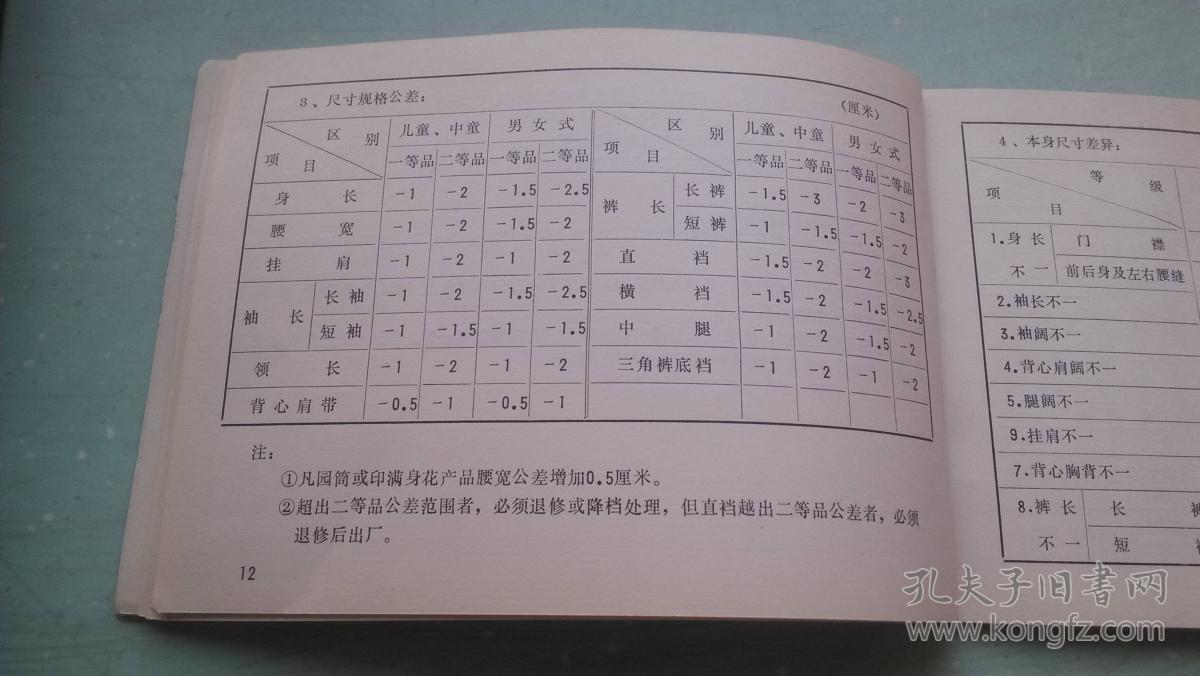 3、尺寸规格公差：
（厘米）
区 别 儿童、中童 男 女 式 区 别 儿童、中童 男 女 式
项 目 一等品 二等品 一等品 二等品 项 目 一等品 二等品 一等品 二等品
身 长 -1 -2 -1.5 -2.5 裤 长 长 裤 -1.5 -3 -2 -3
腰 宽 -1 -2 -1.5 -2 短 裤 -1 -1.5 -1.5 -2
挂 肩 -1 -2 -1 -2 直 裆 -1.5 -2 -2 -3
袖 长 长 袖 -1 -2 -1.5 -2.5 横 裆 -1.5 -2 -1.5 -2.5
短 袖 -1 -1.5 -1 -1.5 中 腿 -1 -2 -1.5 -2
领 长 -1 -2 -1 -2 三角裤底裆 -1 -2 -1 -2
背心肩带 -0.5 -1 -0.5 -1
注：
①凡园筒或印满身花产品腰宽公差增加0.5厘米。
②超出二等品公差范围者，必须退修或降档处理，但直裆越出二等品公差者，必须
退修后出厂。
12
4、本身尺寸差异：
等 级
项 目
1.身 长 门 襟
不 一 前后身及左右腰缝
2.袖长不一
3.袖阔不一
4.背心肩阔不一
5.腿阔不一
9.挂肩不一
7.背心胸背不一
8.裤 长 长 裤
不 一 短
孔夫子旧書网
www.kongfz.com